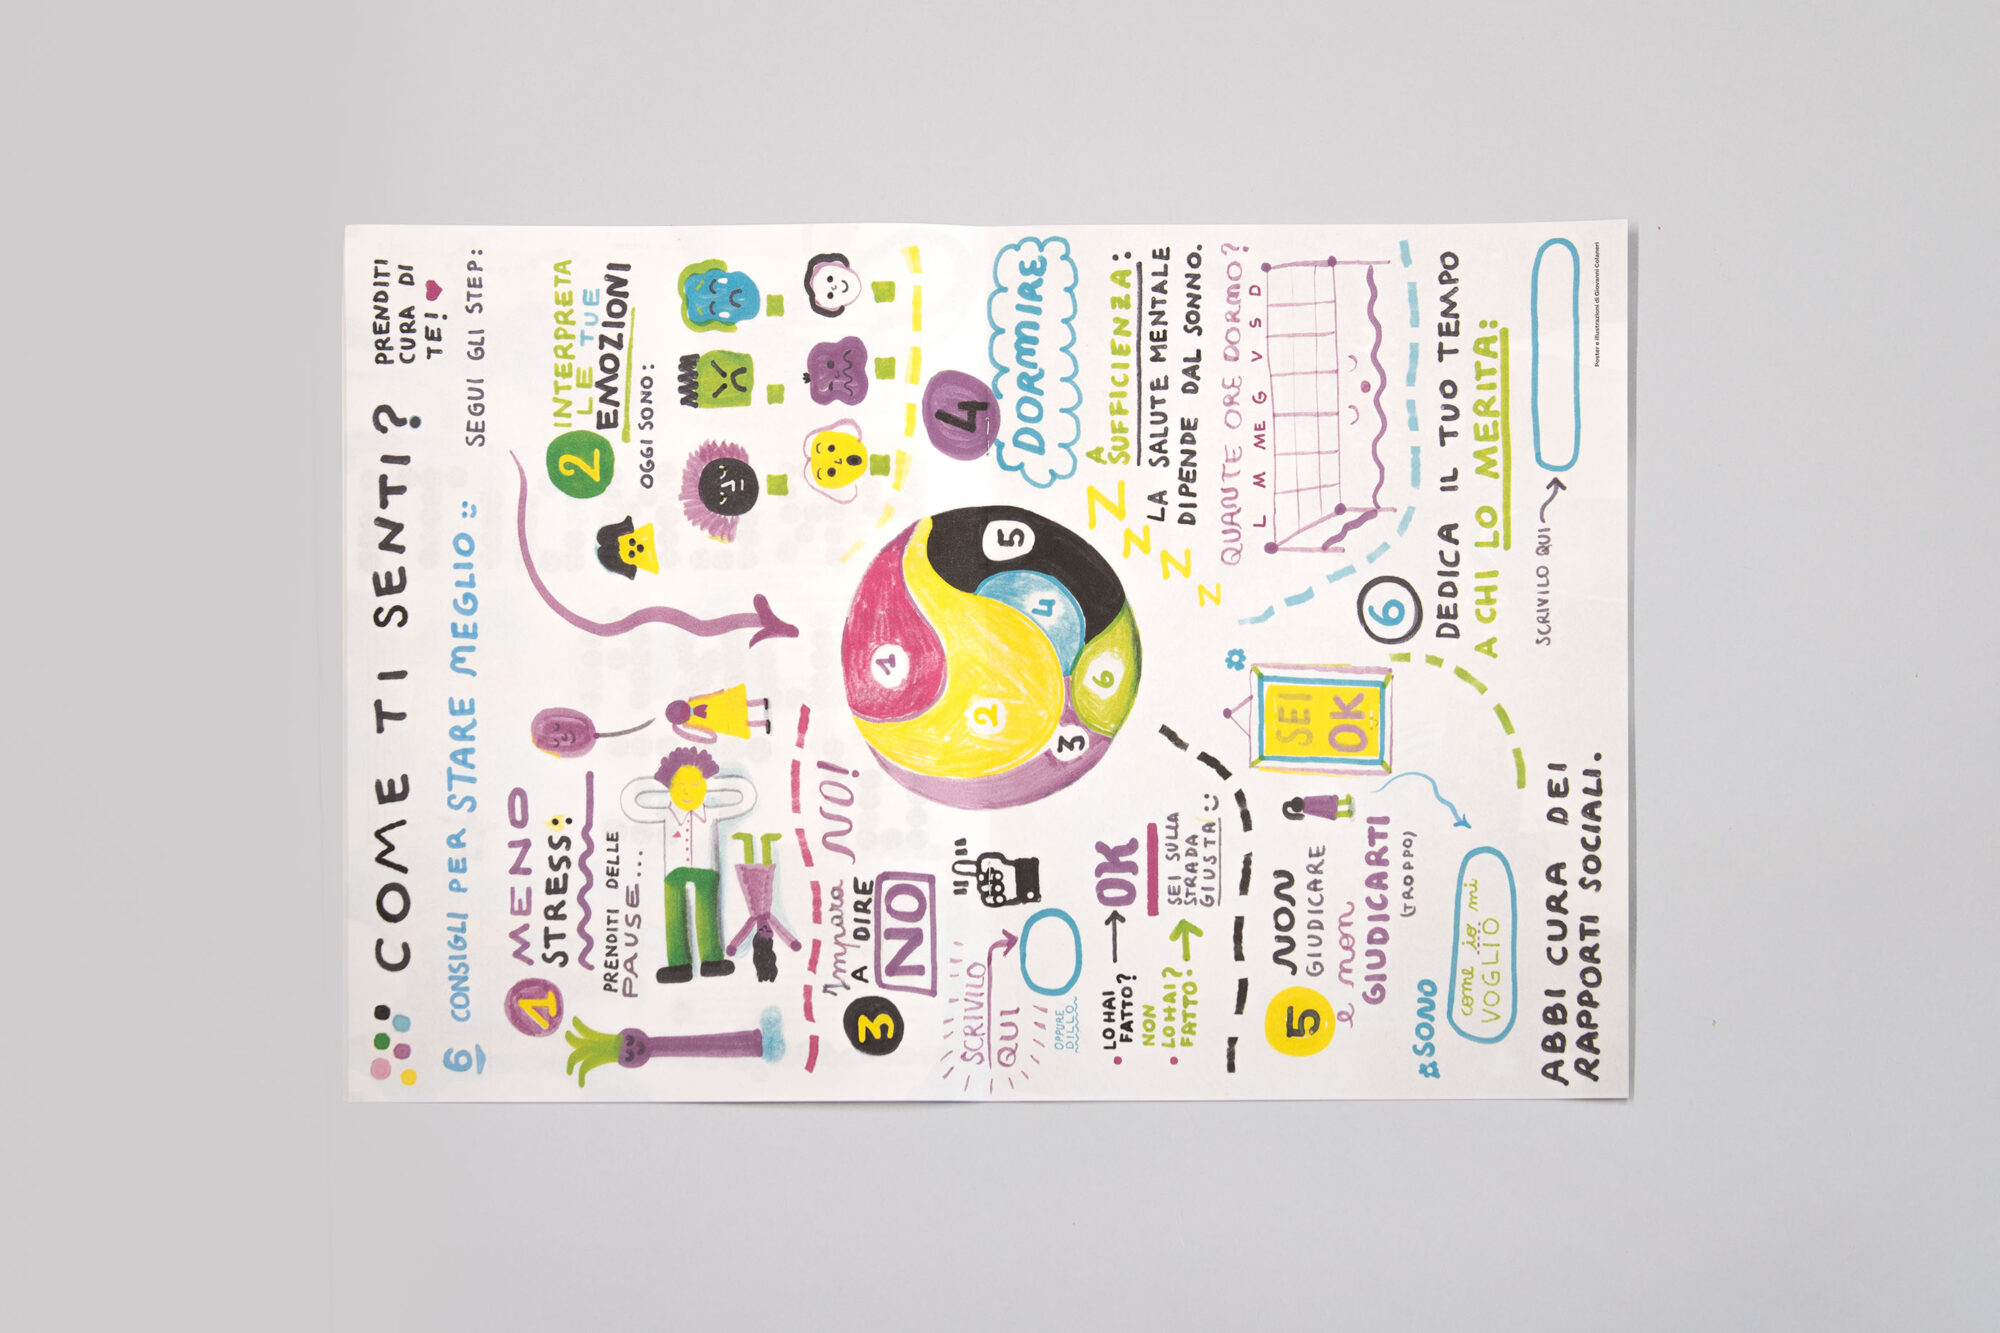 COME TI SENTI?
PRENDITI
CURA DI
TE!
6 CONSIGLI PER STARE MEGLIO
SEGUI GLI STEP:
1 MENO
STRESS:
PRENDITI DELLE
PAUSE...
2 INTERPRETA
LE TUE
EMOZIONI
OGGI SONO:
NO!
3 Impara
A DIRE
NO
SCRIVILO
QUI
OPPURE
DILLO
• LO HAI
FATTO?
OK
NON
• LO HAI
FATTO?
SEI SULLA
STRADA
GIUSTA
1
2
3
4
5
6
4 DORMIRE
A
SUFFICIENZA:
LA SALUTE MENTALE
DIPENDE DAL SONNO.
Z Z Z Z
QUANTE ORE DORMO?
L M ME G V S D
5 NON
GIUDICARE
e non
GIUDICARTI
(TROPPO)
SEI
OK
SONO
come io mi
VOGLIO
6
DEDICA IL TUO TEMPO
A CHI LO MERITA:
SCRIVILO QUI
ABBI CURA DEI
RAPPORTI SOCIALI.
Poster e illustrazioni di Giovanni Colaneri